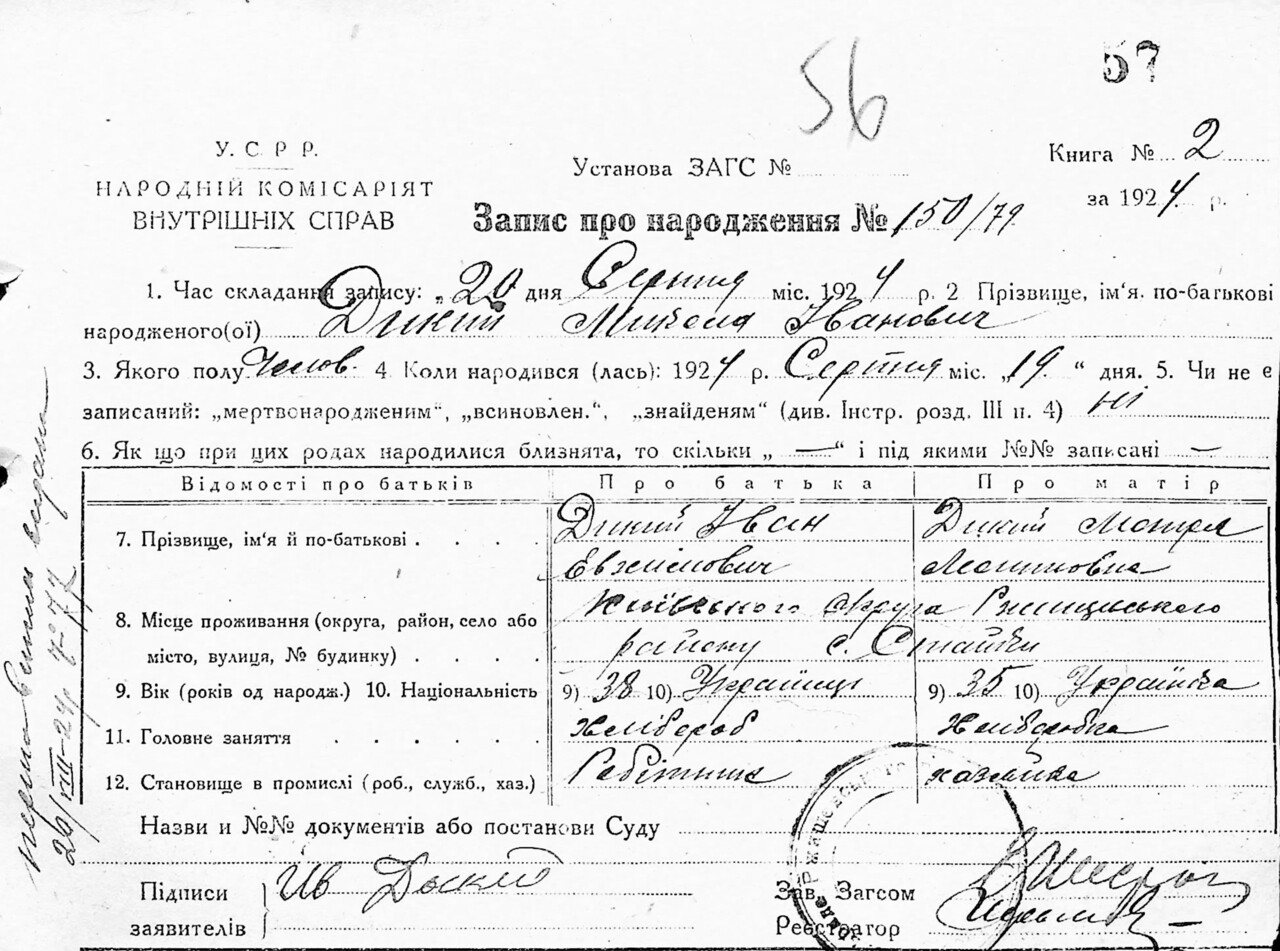 57
56
У. С. Р Р.
НАРОДНІЙ КОМІСАРІЯТ
ВНУТРІШНІХ СПРАВ
Установа ЗАГС №
Книга № 2
за 1924 р.
Запис про народження № 150/79
1. Час складання запису: „20 дня Серпня міс. 1924 р. 2 Прізвище, ім'я. по-батькові
народженого(ої) Дикий Микола Іванович
3. Якого полу Чолов. 4 Коли народився (лась): 1924 р. Серпня міс. „19 “ дня. 5. Чи не є
записаний: „мертвонародженим“, „всиновлен.“, „знайденям“ (див. Інстр. розд. III п. 4) ні
6. Як що при цих родах народилися близнята, то скільки „ — “ і під якими №№ записані —
Відомості про батьків Про батька Про матір
7. Прізвище, ім'я й по-батькові Дикий Іван Дикий Мотря
Евхимович
8. Місце проживання (округа, район, село або Київського округа Ржищівського
місто, вулиця, № будинку) району с. Стайки
9. Вік (років од народж.) 10. Національність 9) 38 10) Українці 9) 35 10) Українка
11. Головне заняття Хлібороб Хліборобка
12. Становище в промислі (роб., служб., хаз.) Робітник хазяйка
Назви и №№ документів або постанови Суду
Підписи
заявителів
Ив
Зав. Загсом
Реєстратор
26/VIII-24 р.